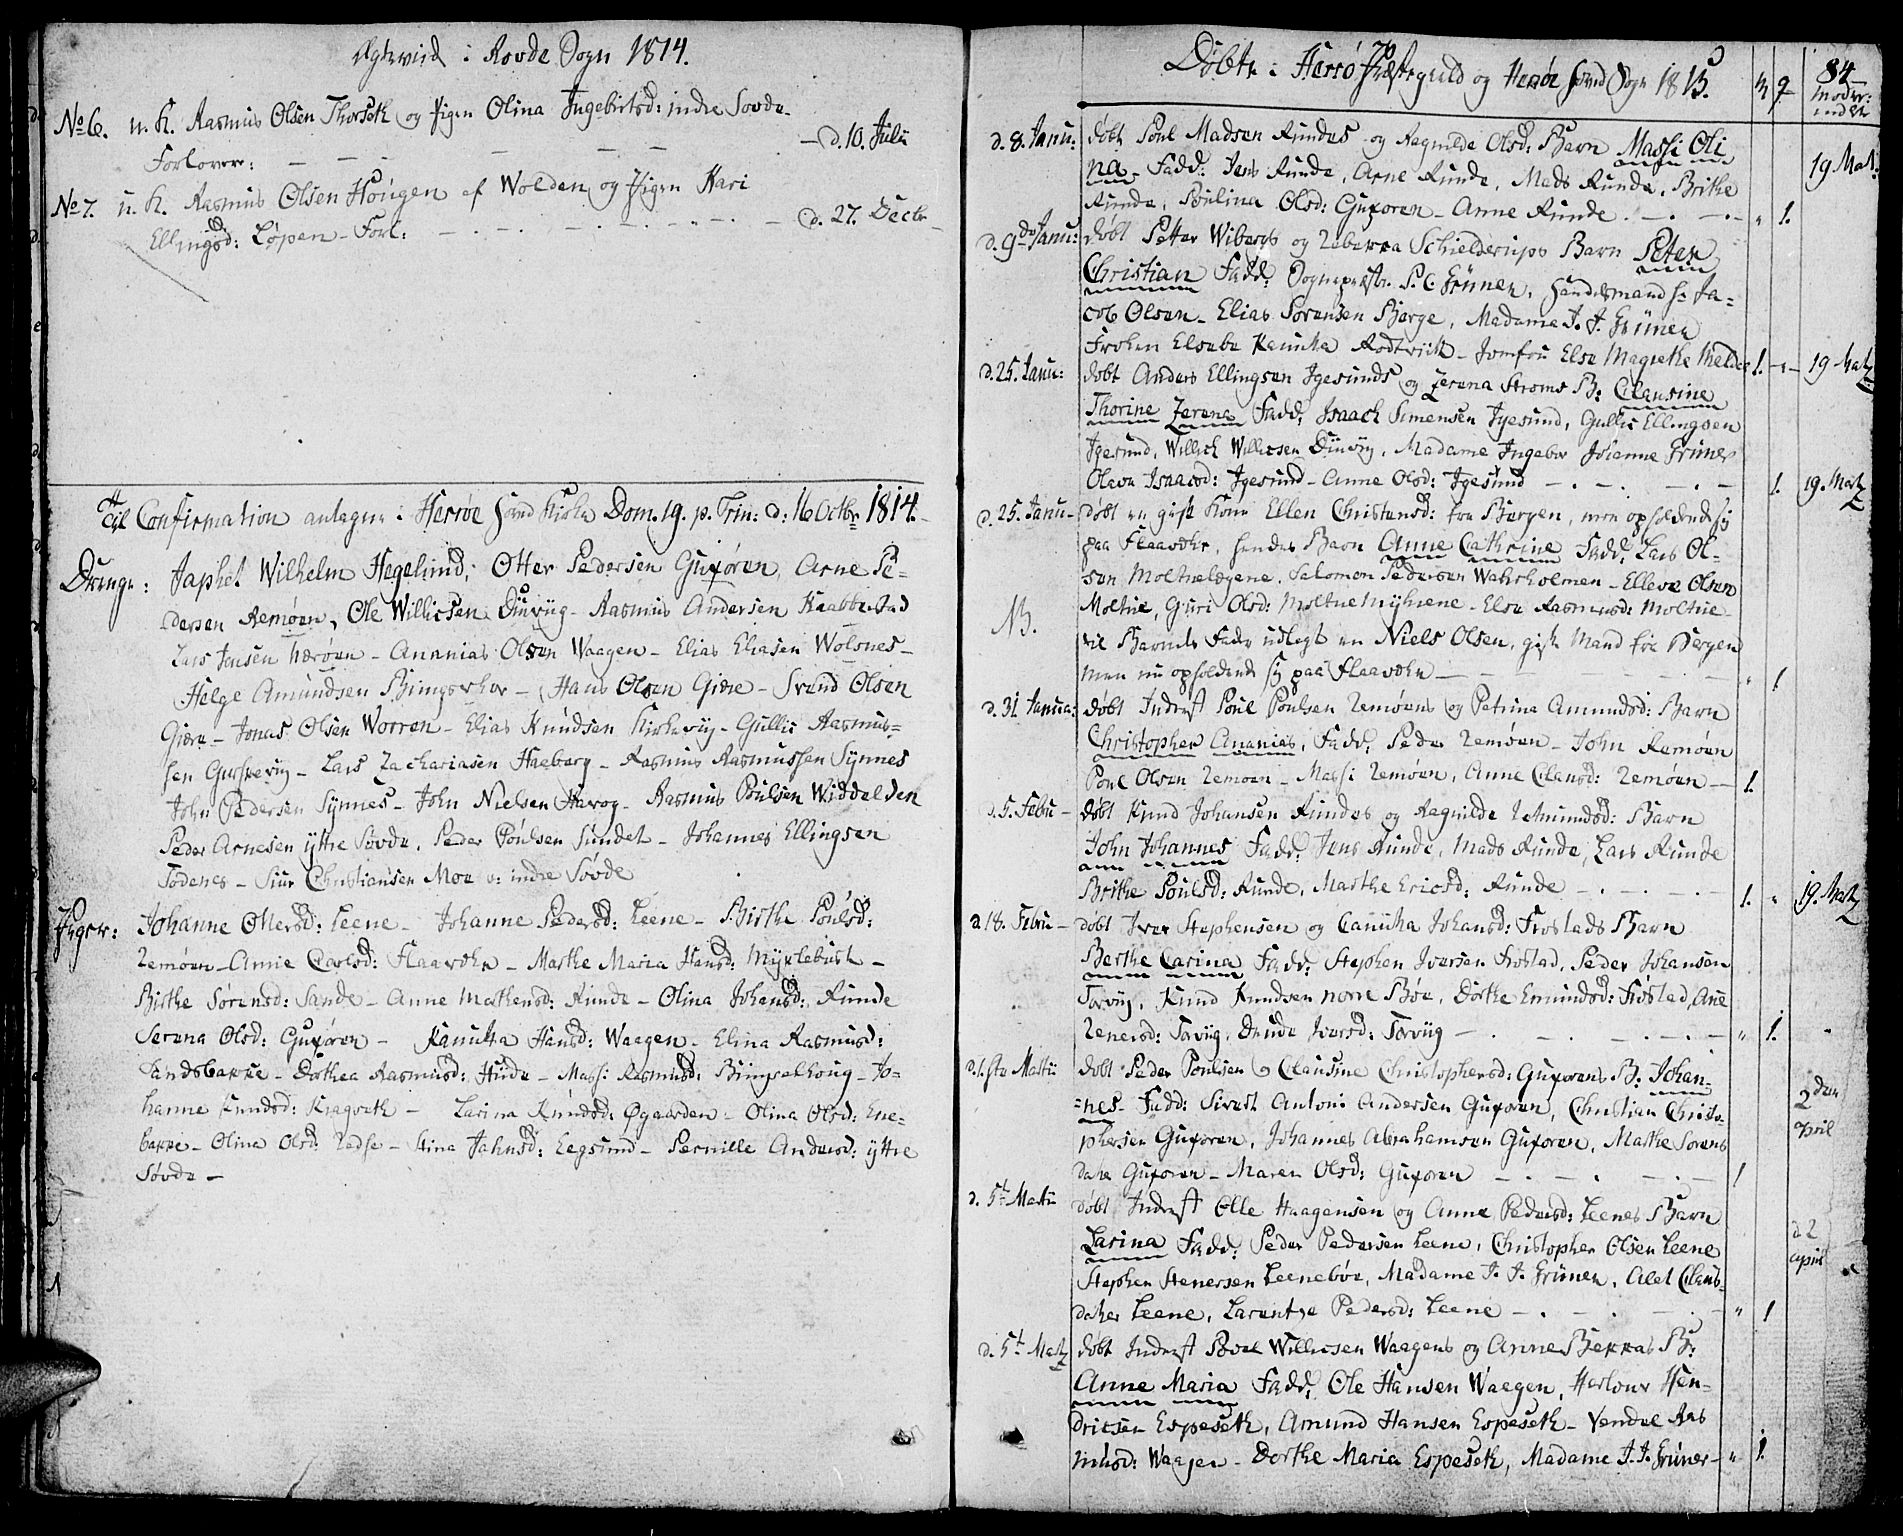 Ægteviid i Rovde Sogn 1814.
No 6. u. K. Rasmus Olsen Thorseth og Pigen Olina Ingebrigtsd: indre Sovde
Forlovere: — — — — — d. 10. Juli
No 7. u. K. Rasmus Olsen Hougen af Wolden og Pigen Kari
Ellingsd: Løpen – Forl: — — — — d. 27. Decbr
Til Confirmation antagne i Herrøe hoved Kirke Dom. 19. p. Trin: d: 16 Octbr 1814.
Drenge: Japhet Wilhelm Hegelund, Otter Pedersen Gurøren, Arne Pe-
dersen Remøen, Ole Willicsen Dinviig – Rasmus Andersen Kaabbestad
Lars Jensen Herøen – Ananias Olsen Waagen – Elias Eliasen Wolsnes –
Helge Amundsen Bimpserhov – Hans Olsen Gjøre – Svend Olsen
Gjøre – Jonas Olsen Worren – Elias Knudsen Kirkeviig – Gullic Rasmus-
sen Gurskeviig – Lars Zachariasen Hagberg – Rasmus Rasmussen Synnes
John Pedersen Synnes – John Nielsen Havog – Rasmus Poulsen Widdalden
Peder Arnesen yttre Søvde, Peder Poulsen Sundet – Johannes Ellingsen
Todenes – Siur Christiansen Moe v: indre Søvde
Piger: Johanne Ottersd: Leene – Johanne Pedersd: Leene – Birthe Poulsd:
Remøen – Anne Carlsd: Flaavær – Marthe Maria Hansd: Myrlebust –
Birthe Sørensd: Sande – Anne Mathensd: Runde – Olina Johansd: Runde
Serena Olsd: Gurøren – Kanutta Hansd: Waagen – Elina Rasmusd:
Sandsbakke – Dorthea Rasmusd: Hide – Massi Rasmusd: Bimpselhoug – Jo-
hanne Knudsd: Kragseth – Larina Knudsd: Øgaarden – Olina Olsd: Ene-
bakke – Olina Olsd: Radse – Stina Jahnsd: Eegsund – Pernille Andersd: yttre
Søvde –
Døbte i Herrø Præstegield og Herrøe hoved Sogn 1815.
84
d. 8. Janu: døbt Poul Madsen Rundes og Ragnilde Olsd: Barn Massi Oli
na. Fadd: Jens Runde, Arne Runde, Mads Runde, Birthe
Runde, Poulina Olsd: Gurøren – Anne Runde. – . – . – „ 1. 19 Mart.
d. 9de Janu: døbt Petter Wibergs og Rebecca Schielderups Barn Peter
Christian Fadd: Sognepræst P. C. Grüner, Handelsmand hr Ja-
cob Olsen – Elias Sørensen Berge, Madame J. J. Grüner
Frøken Elsebe Kanutta Rodtvitt – Jomfru Else Magrethe Melder 1. – 19 Martz
d. 25. Janu: døbt Anders Ellingsen Igesunds og Zerena Strøms B: Clausine
Thorine Zerena Fadd: Isaach Simensen Igesund, Gullic Ellingsen
Igesund, Willich Willicsen Dinviig, Madame Ingebor Johanne Grüner
Olava Isaacsd: Igesund – Anne Olsd: Igesund – . – . – . – 1. 19. Martz
d. 25. Janu – døbt en gift Kone Ellen Christensd: fra Bergen, men opholdende sig
paa Flaavær, hendes Barn Anne Cathrine Fadd: Lars Ol-
sen Moltuelægene, Salomon Pedersen Wahrholmen – Elleve Olsen
Moltue, Guri Olsd: Moltuemyhrene – Else Rasmusd: Moltue
NB. til Barnets Fader udlegt en Niels Olsen, gift Mand fra Bergen
men nu opholdende sig paa Flaavær – — — — „ 1
d. 31 Janua: døbt Inderst Poul Poulsen Remøens og Petrina Amundsd: Barn
Christopher Ananias, Fadd: Peder Remøen – John Remøen
Poul Olsen Remøen – Massi Remøen, Anne Clausd: Remøen – 1.
d. 5. Febru – døbt Knud Johansen Rundes og Ragnilde Amundsd: Barn
John Johannes Fadd: Jens Runde, Mads Runde, Lars Runde
Birthe Poulsd: Runde, Marthe Ericsd: Runde – . – . – . – 1. „ 19. Martz
d. 18. Febru – døbt Iver Stephensen og Canutta Johansd: Frøstads Barn
Berthe Carina Fadd: Stephen Iversen Frøstad, Peder Johansen
Torviig, Knud Knudsen norre Bøe, Dorthe Emundsd: Frøstad, Ane
Zenersd: Torviig, Drude Iversd: Torviig – . – . – . „ 1.
d. 1ste Martii døbt Peder Poulsen og Clausine Christophersd: Gurørens B. Johan-
nes – Fadd: Sivert Antoni Andersen Gurøren, Christian Christo-
phersen Gurøren, Johannes Abrahamsen Gurøren, Marthe Sørens
dater Gurøren – Maren Olsd: Gurøren – . – . – 1 2den April
d. 5t Martii døbt Inderst Olle Haagensen og Anne Pedersd: Leenes Barn
Larina Fadd: Peder Pedersen Leene, Christopher Olsen Leene
Stephen Stenersen Leenebøe, Madame J. J. Grüner, Alet Claus-
dater Leene, Larentse Pedersd: Leene – . – . – „ 1 d 2 april
d. 5t Martz døbt Inderst Povel Willicsen Waagens og Anne Bekkas B:
Anne Maria Fadd: Ole Hansen Waagen, Herlouv Hen-
dricsen Espeseth, Amund Hansen Espeseth – Vendel Ras
musd: Waagen – Dorthe Maria Espeseth, Madame J. J. Grüner – „ 1.